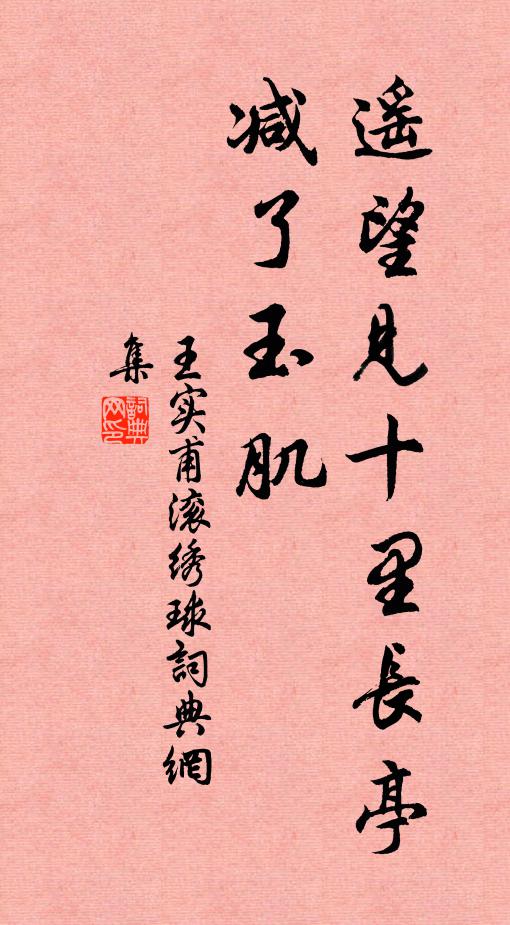 遥望見十里長亭
减了玉肌
王实甫滚绣球詞典網
集
詞典
网印